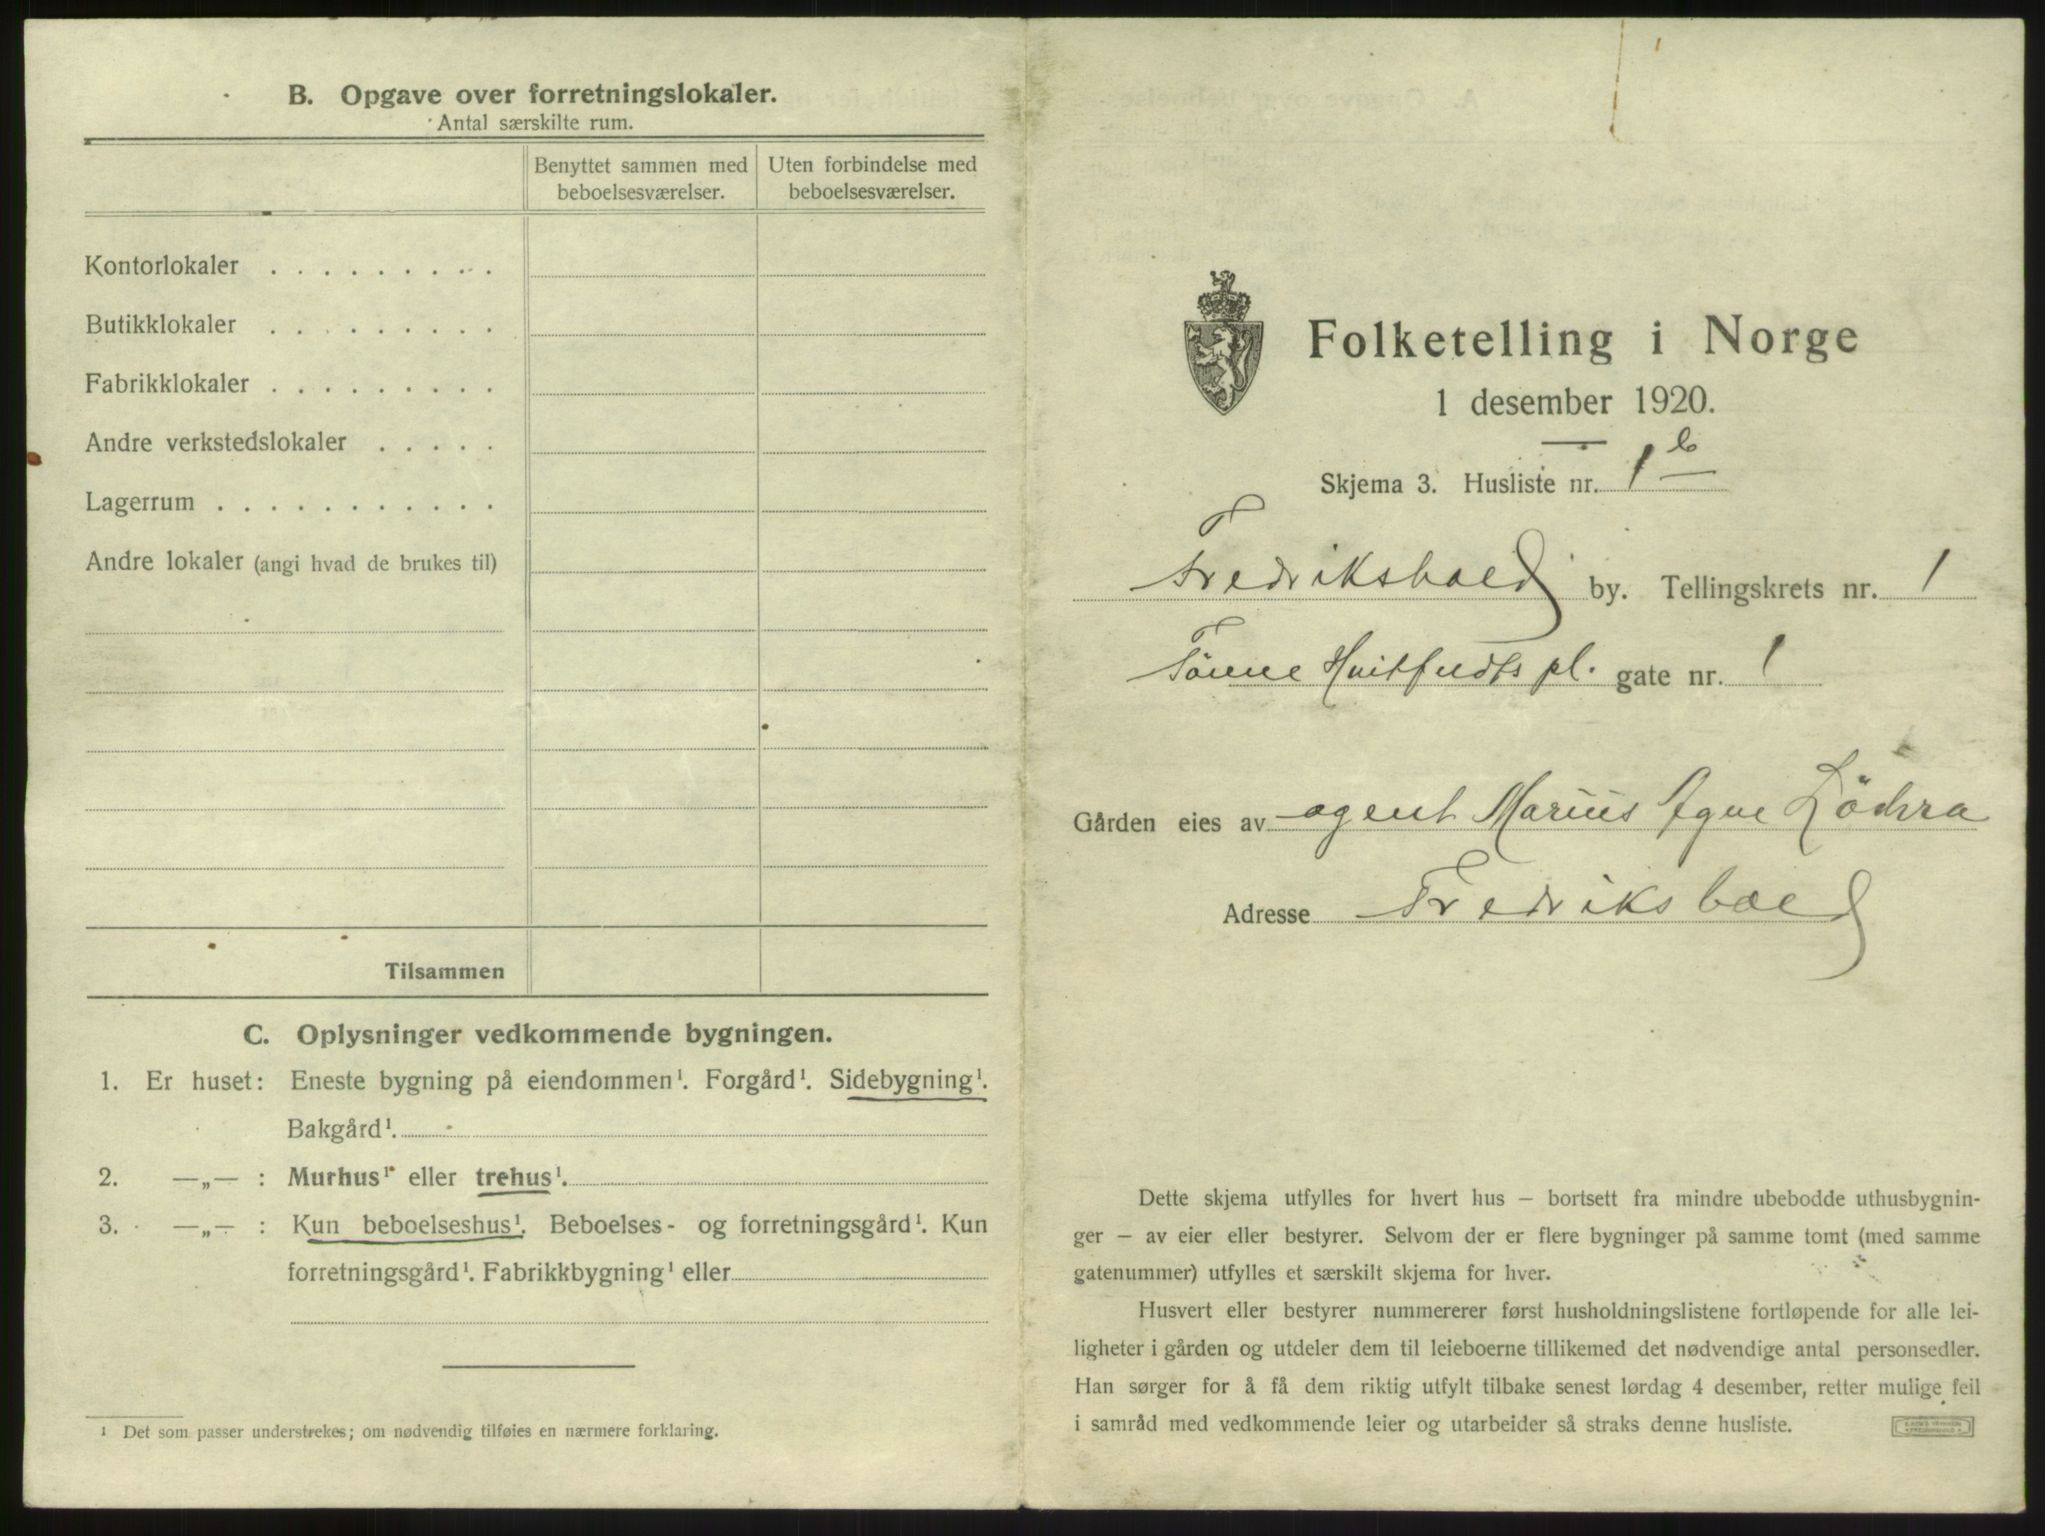 B. Opgave over forretningslokaler.
Antal særskilte rum.
Benyttet sammen med beboelsesværelser.
Uten forbindelse med beboelsesværelser.
Kontorlokaler . . . . . . . . .
Butikklokaler . . . . . . . . .
Fabrikklokaler . . . . . . . . .
Andre verkstedslokaler . . . . .
Lagerrum . . . . . . . . . . .
Andre lokaler (angi hvad de brukes til)
Tilsammen
C. Oplysninger vedkommende bygningen.
1. Er huset: Eneste bygning på eiendommen¹. Forgård¹. Sidebygning¹.
Bakgård¹.
2. —„— : Murhus¹ eller trehus¹.
3. —„— : Kun beboelseshus¹. Beboelses- og forretningsgård¹. Kun
forretningsgård¹. Fabrikkbygning¹ eller
¹ Det som passer understrekes; om nødvendig tilføies en nærmere forklaring.
Folketelling i Norge
1 desember 1920.
Skjema 3. Husliste nr. 1 b
Fredrikshald by. Tellingskrets nr. 1
Tönne Huitfeldts pl. gate nr. 1
Gården eies av agent Marius Agne
Adresse Fredrikshald
Dette skjema utfylles for hvert hus – bortsett fra mindre ubebodde uthusbygnin-
ger – av eier eller bestyrer. Selvom der er flere bygninger på samme tomt (med samme
gatenummer) utfylles et særskilt skjema for hver.
Husvert eller bestyrer nummererer først husholdningslistene fortløpende for alle lei-
ligheter i gården og utdeler dem til leieboerne tillikemed det nødvendige antal personsedler.
Han sørger for å få dem riktig utfylt tilbake senest lørdag 4 desember, retter mulige feil
i samråd med vedkommende leier og utarbeider så straks denne husliste.